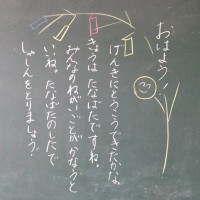 おはよう!
げんきにとうこうできたかな。
きょうは たなばたですね。
みんなのねがいごとが かなうと
いいね。たなばたのしたで
しゃしんをとりましょう!